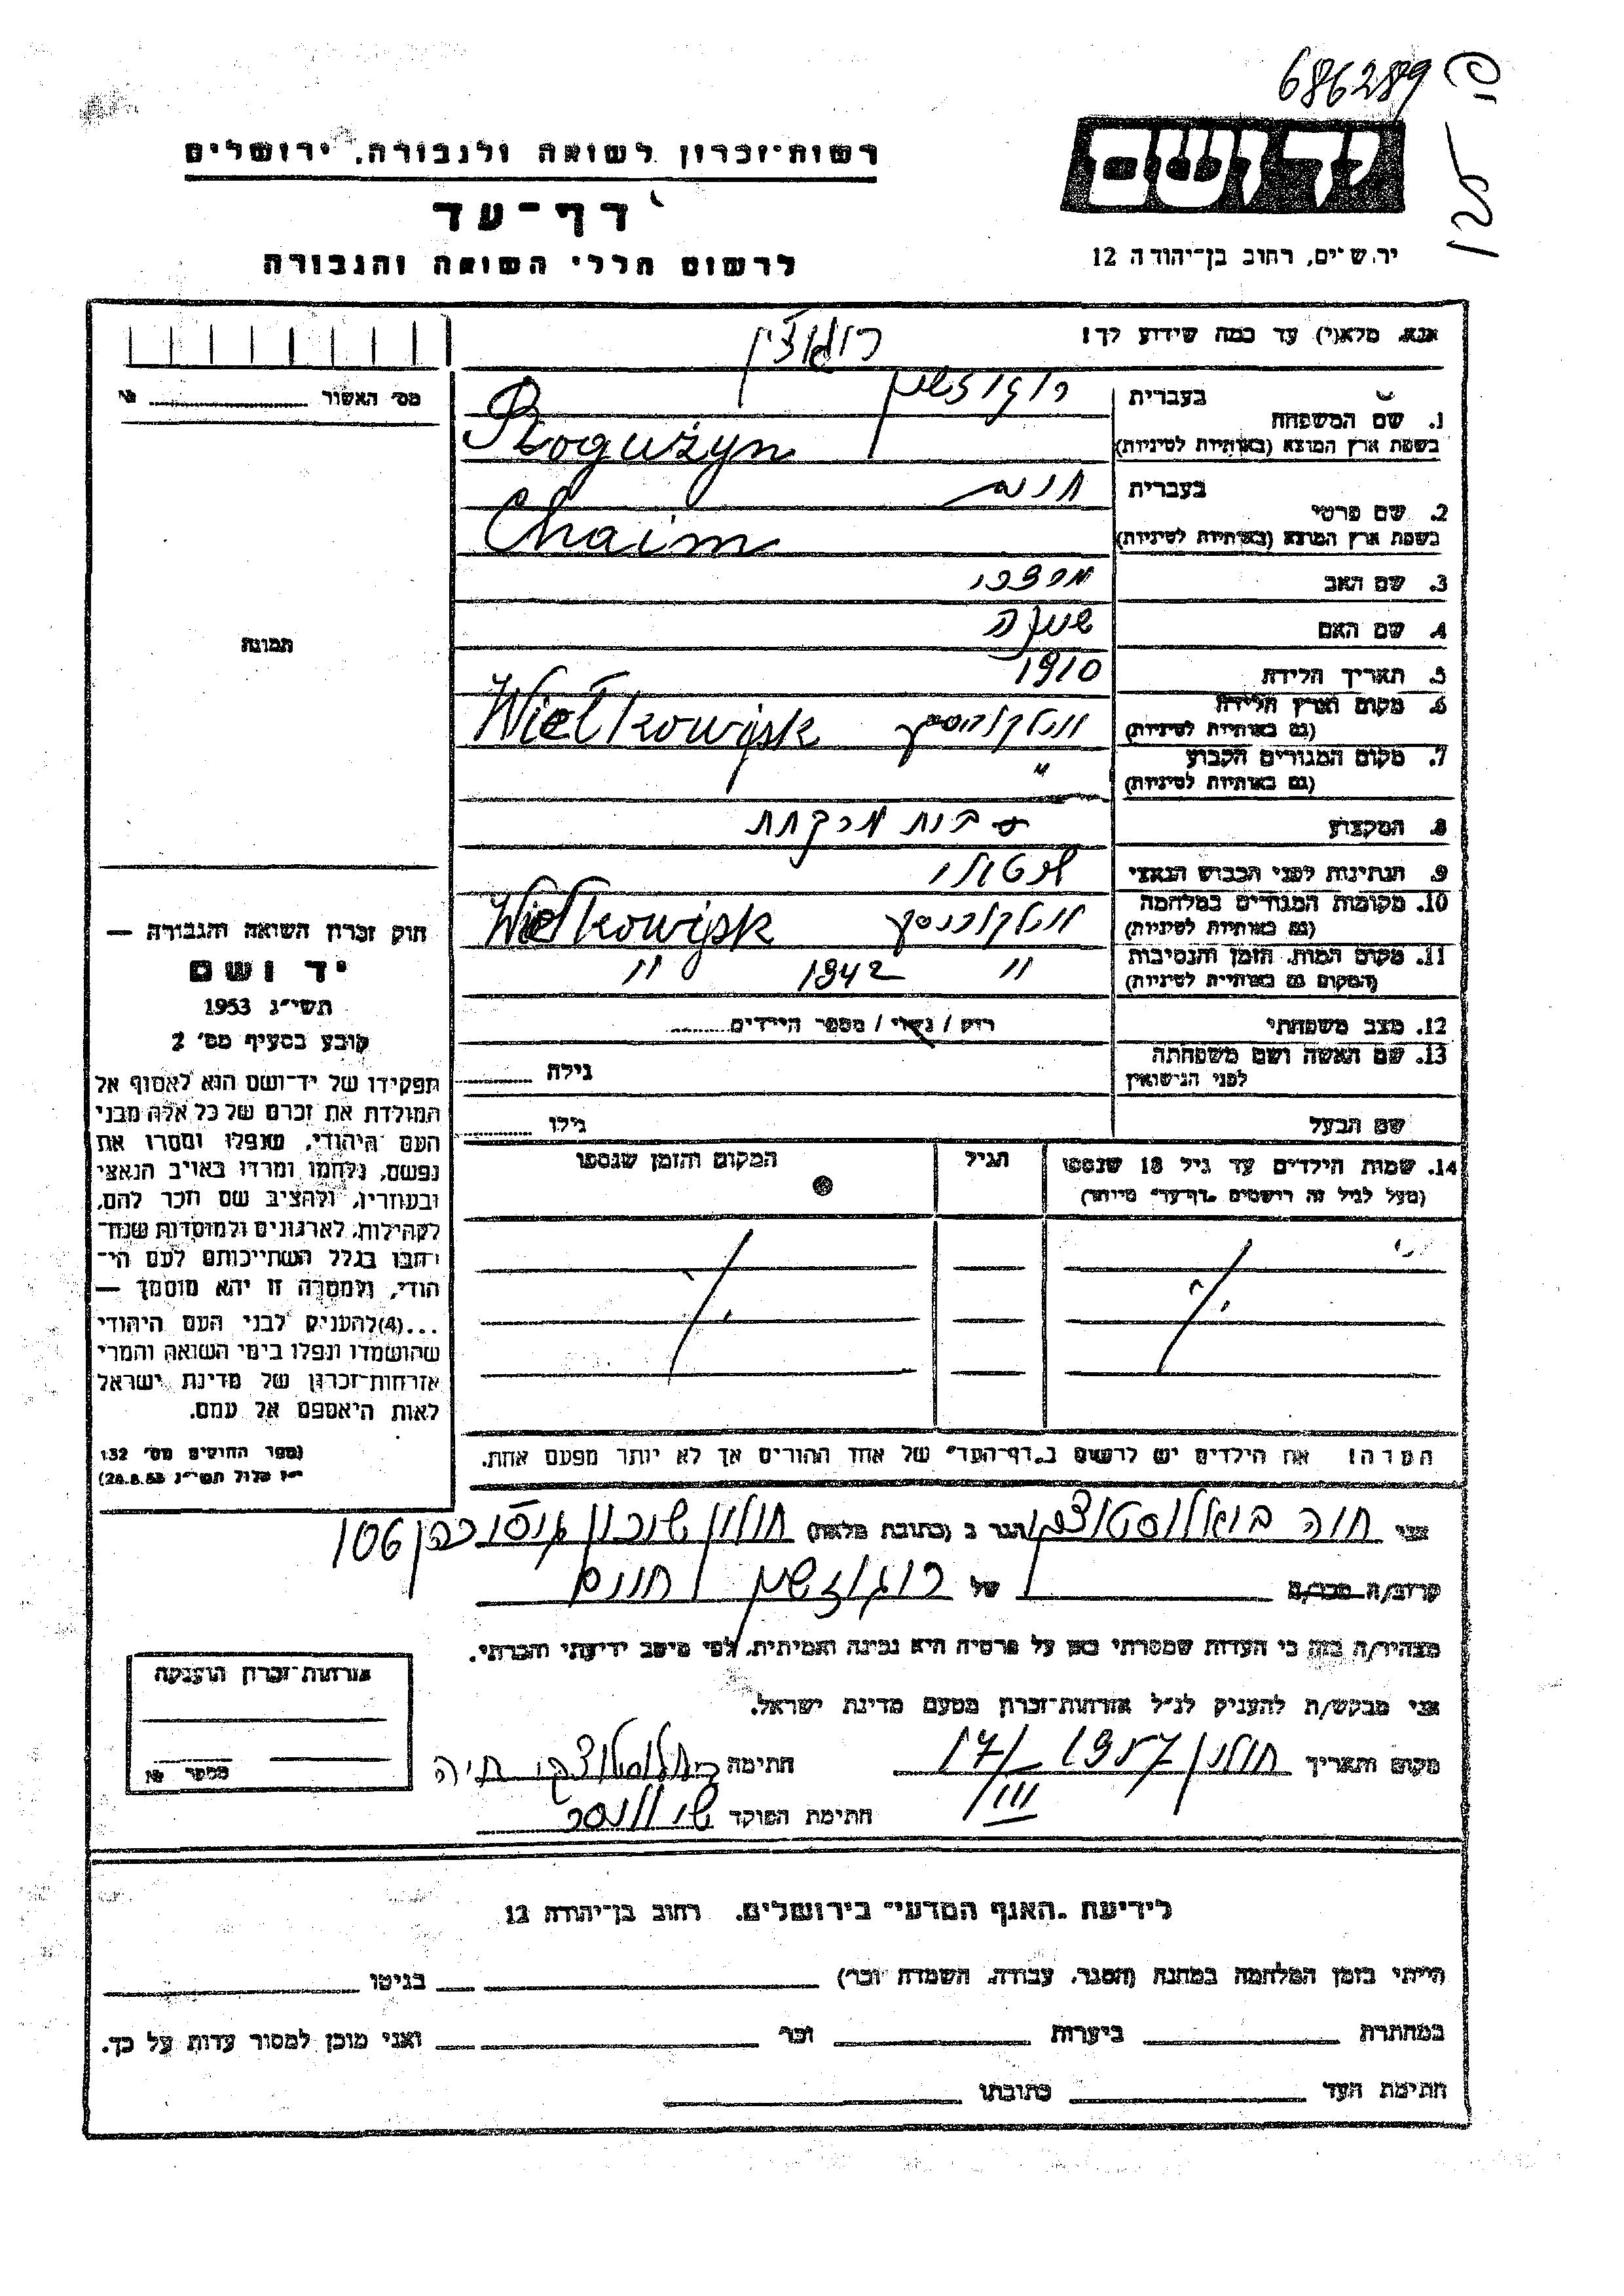 686289
יד ושם
רשות־זכרון לשואה ולגבורה, ירושלים
דף־עד
לרשום חללי השואה והגבורה
רחוב בן־יהודה 12
אנא, מלא(י) עד כמה שידוע לך!
רוגוז'ין
מס' האשור
1. שם המשפחה
בעברית
רוגוזשין
בשפת ארץ המוצא (באותיות לטיניות)
Roguzyn
2. שם פרטי
בעברית
חיים
בשפת ארץ המוצא (באותיות לטיניות)
Chaim
3. שם האב
מרדכי
4. שם האם
5. תאריך הלידה
1910
6. מקום וארץ הלידה
(גם באותיות לטיניות)
Wiełkowijsk
7. מקום המגורים הקבוע
(גם באותיות לטיניות)
"
8. המקצוע
בית מרקחת
9. הנתינות לפני הכבוש הנאצי
ליטאי
10. מקומות המגורים במלחמה
(גם באותיות לטיניות)
Wiełkowijsk
11. מקום המות, הזמן והנסיבות
(המקום גם באותיות לטיניות)
" 1942 "
12. מצב משפחתי
רוק / נשוי / מספר הילדים
13. שם האשה ושם משפחתה
לפני הנישואין
גילה
שם הבעל
גילו
14. שמות הילדים עד גיל 18 שנספו
(מעל לגיל זה רושמים „דף־עד" מיוחד)
הגיל
המקום והזמן שנספו
הערה! את הילדים יש לרשום ב„דף־העד" של אחד ההורים אך לא יותר מפעם אחת.
תמונה
חוק זכרון השואה והגבורה —
יד ושם
תשי"ג 1953
קובע בסעיף מס' 2
תפקידו של יד־ושם הוא לאסוף אל
המולדת את זכרם של כל אלה מבני
העם היהודי, שנפלו ומסרו את
נפשם, נלחמו ומרדו באויב הנאצי
ובעוזריו, ולהציב שם וזכר להם,
לקהילות, לארגונים ולמוסדות שנח־
רבו בגלל השתייכותם לעם הי־
הודי, ולמטרה זו יהא מוסמך —
...(4)להעניק לבני העם היהודי
שהושמדו ונפלו בימי השואה והמרי
אזרחות־זכרון של מדינת ישראל
לאות היאספם אל עמם.
(ספר החוקים מס' 132
י"ז אלול תשי"ג 28.8.53)
אני חיה הגר ב (כתובת מלאה) חולון שיכון 106
קרוב/ה מכר/ה של רוגוזשין חיים
מצהיר/ה בזה כי העדות שמסרתי כאן על פרטיה היא נכונה ואמיתית, לפי מיטב ידיעתי והכרתי.
אני מבקש/ת להעניק לנ"ל אזרחות־זכרון מטעם מדינת ישראל.
מקום ותאריך חולון 1957 17/III חתימה חיה
חתימת הפוקד
אזרחות־זכרון הוענקה
מספר
לידיעת „האגף המדעי" בירושלים, רחוב בן־יהודה 12
הייתי בזמן המלחמה במחנה (הסגר, עבודה, השמדה וכו') בגיטו
במחתרת ביערות וכו' ואני מוכן למסור עדות על כך.
חתימת העד כתובתו